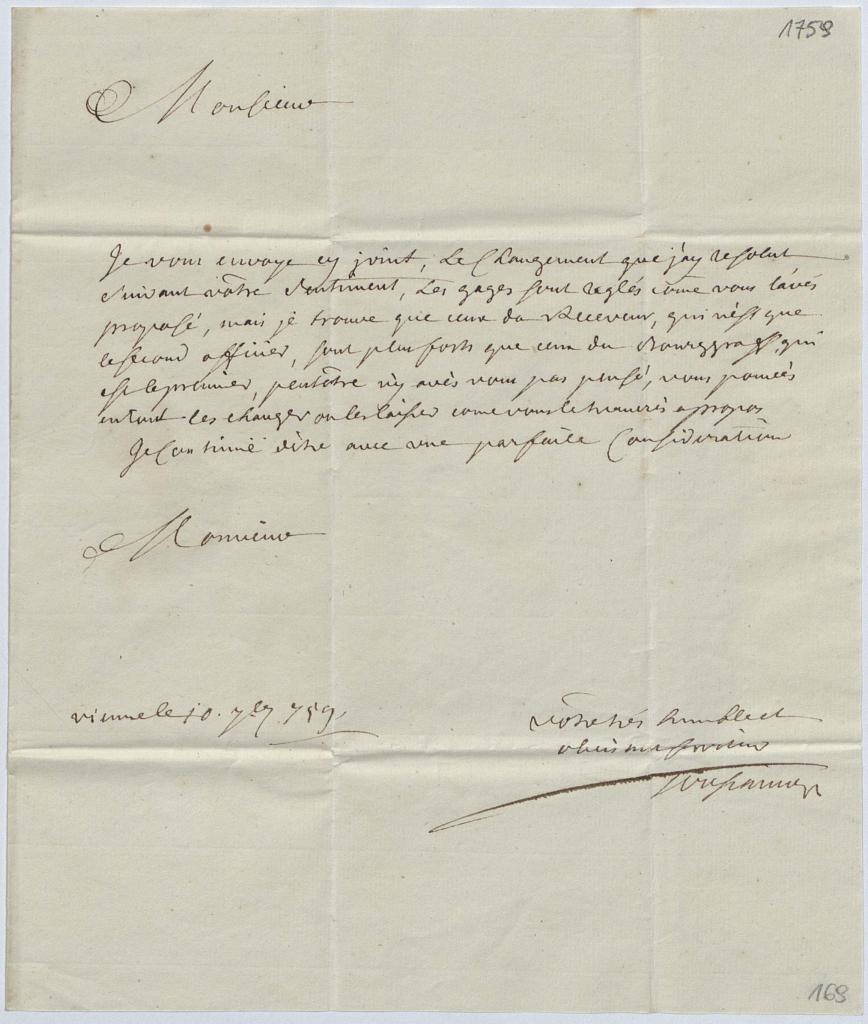 1759
Monsieur
Je vous envoye cy joint, Le Changement que j'ay resolut
suivant vôtre sentiment, Les gages sont reglés come vous l'avés
proposé, mais je trouve que ceux du Receveur, qui n'est que
le second officier, sont plus forts que ceux du Bourggraff, qui
est le premier, peutêtre n'y avés vous pas pensé, vous pouvés
entout les changer ou les laisser come vous le trouverés apropos
Je Continüe d'être avec une parfaite Consideration
Monsieur
vienne le 10. 7b 759.
vôtre trés humble et
obeissant serviteur
169